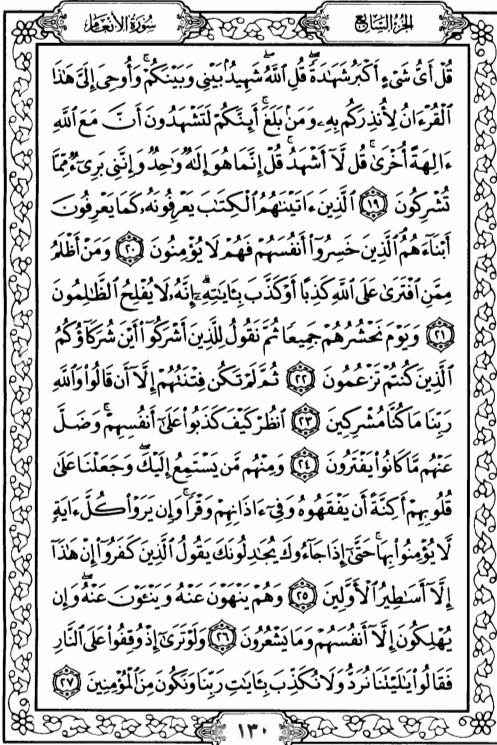 سُورَةُ الأَنْعَامِ
الجُزْءُ السَّابِعُ
قُلْ أَيُّ شَيْءٍ أَكْبَرُ شَهَٰدَةً ۖ قُلِ ٱللَّهُ ۖ شَهِيدٌۢ بَيْنِي وَبَيْنَكُمْ ۚ وَأُوحِيَ إِلَيَّ هَٰذَا
ٱلْقُرْءَانُ لِأُنذِرَكُم بِهِۦ وَمَنۢ بَلَغَ ۚ أَئِنَّكُمْ لَتَشْهَدُونَ أَنَّ مَعَ ٱللَّهِ
ءَالِهَةً أُخْرَىٰ ۚ قُل لَّآ أَشْهَدُ ۚ قُلْ إِنَّمَا هُوَ إِلَٰهٌ وَٰحِدٌ وَإِنَّنِي بَرِيٓءٌ مِّمَّا
تُشْرِكُونَ ١٩ ٱلَّذِينَ ءَاتَيْنَٰهُمُ ٱلْكِتَٰبَ يَعْرِفُونَهُۥ كَمَا يَعْرِفُونَ
أَبْنَآءَهُمُ ٱلَّذِينَ خَسِرُوٓا۟ أَنفُسَهُمْ فَهُمْ لَا يُؤْمِنُونَ ٢٠ وَمَنْ أَظْلَمُ
مِمَّنِ ٱفْتَرَىٰ عَلَى ٱللَّهِ كَذِبًا أَوْ كَذَّبَ بِـَٔايَٰتِهِۦٓ ۗ إِنَّهُۥ لَا يُفْلِحُ ٱلظَّٰلِمُونَ
٢١ وَيَوْمَ نَحْشُرُهُمْ جَمِيعًا ثُمَّ نَقُولُ لِلَّذِينَ أَشْرَكُوٓا۟ أَيْنَ شُرَكَآؤُكُمُ
ٱلَّذِينَ كُنتُمْ تَزْعُمُونَ ٢٢ ثُمَّ لَمْ تَكُن فِتْنَتُهُمْ إِلَّآ أَن قَالُوا۟ وَٱللَّهِ
رَبِّنَا مَا كُنَّا مُشْرِكِينَ ٢٣ ٱنظُرْ كَيْفَ كَذَبُوا۟ عَلَىٰٓ أَنفُسِهِمْ ۚ وَضَلَّ
عَنْهُم مَّا كَانُوا۟ يَفْتَرُونَ ٢٤ وَمِنْهُم مَّن يَسْتَمِعُ إِلَيْكَ ۖ وَجَعَلْنَا عَلَىٰ
قُلُوبِهِمْ أَكِنَّةً أَن يَفْقَهُوهُ وَفِيٓ ءَاذَانِهِمْ وَقْرًا ۚ وَإِن يَرَوْا۟ كُلَّ ءَايَةٍ
لَّا يُؤْمِنُوا۟ بِهَا ۚ حَتَّىٰٓ إِذَا جَآءُوكَ يُجَٰدِلُونَكَ يَقُولُ ٱلَّذِينَ كَفَرُوٓا۟ إِنْ هَٰذَآ
إِلَّآ أَسَٰطِيرُ ٱلْأَوَّلِينَ ٢٥ وَهُمْ يَنْهَوْنَ عَنْهُ وَيَنْـَٔوْنَ عَنْهُ ۖ وَإِن
يُهْلِكُونَ إِلَّآ أَنفُسَهُمْ وَمَا يَشْعُرُونَ ٢٦ وَلَوْ تَرَىٰٓ إِذْ وُقِفُوا۟ عَلَى ٱلنَّارِ
فَقَالُوا۟ يَٰلَيْتَنَا نُرَدُّ وَلَا نُكَذِّبَ بِـَٔايَٰتِ رَبِّنَا وَنَكُونَ مِنَ ٱلْمُؤْمِنِينَ ٢٧
١٣٠